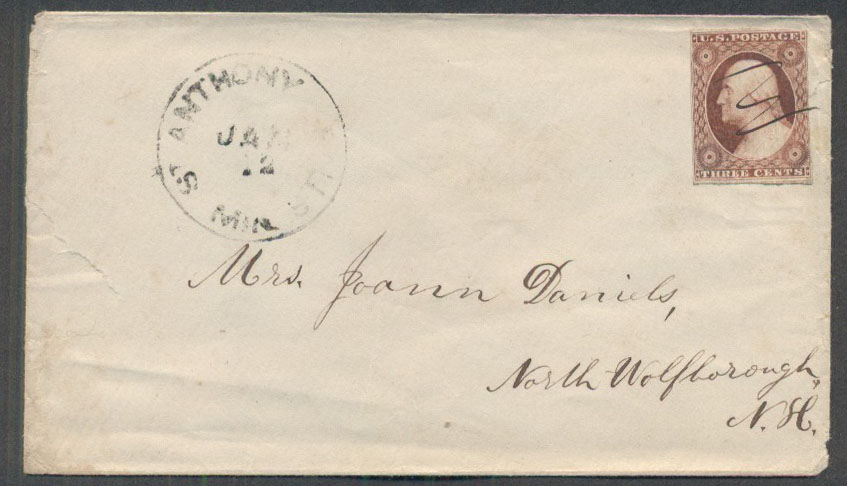 U.S. POSTAGE
THREE CENTS
ST ANTHONY
JAN
12
MIN
Mrs. Joann Daniels,
North Wolfborough,
N.H.